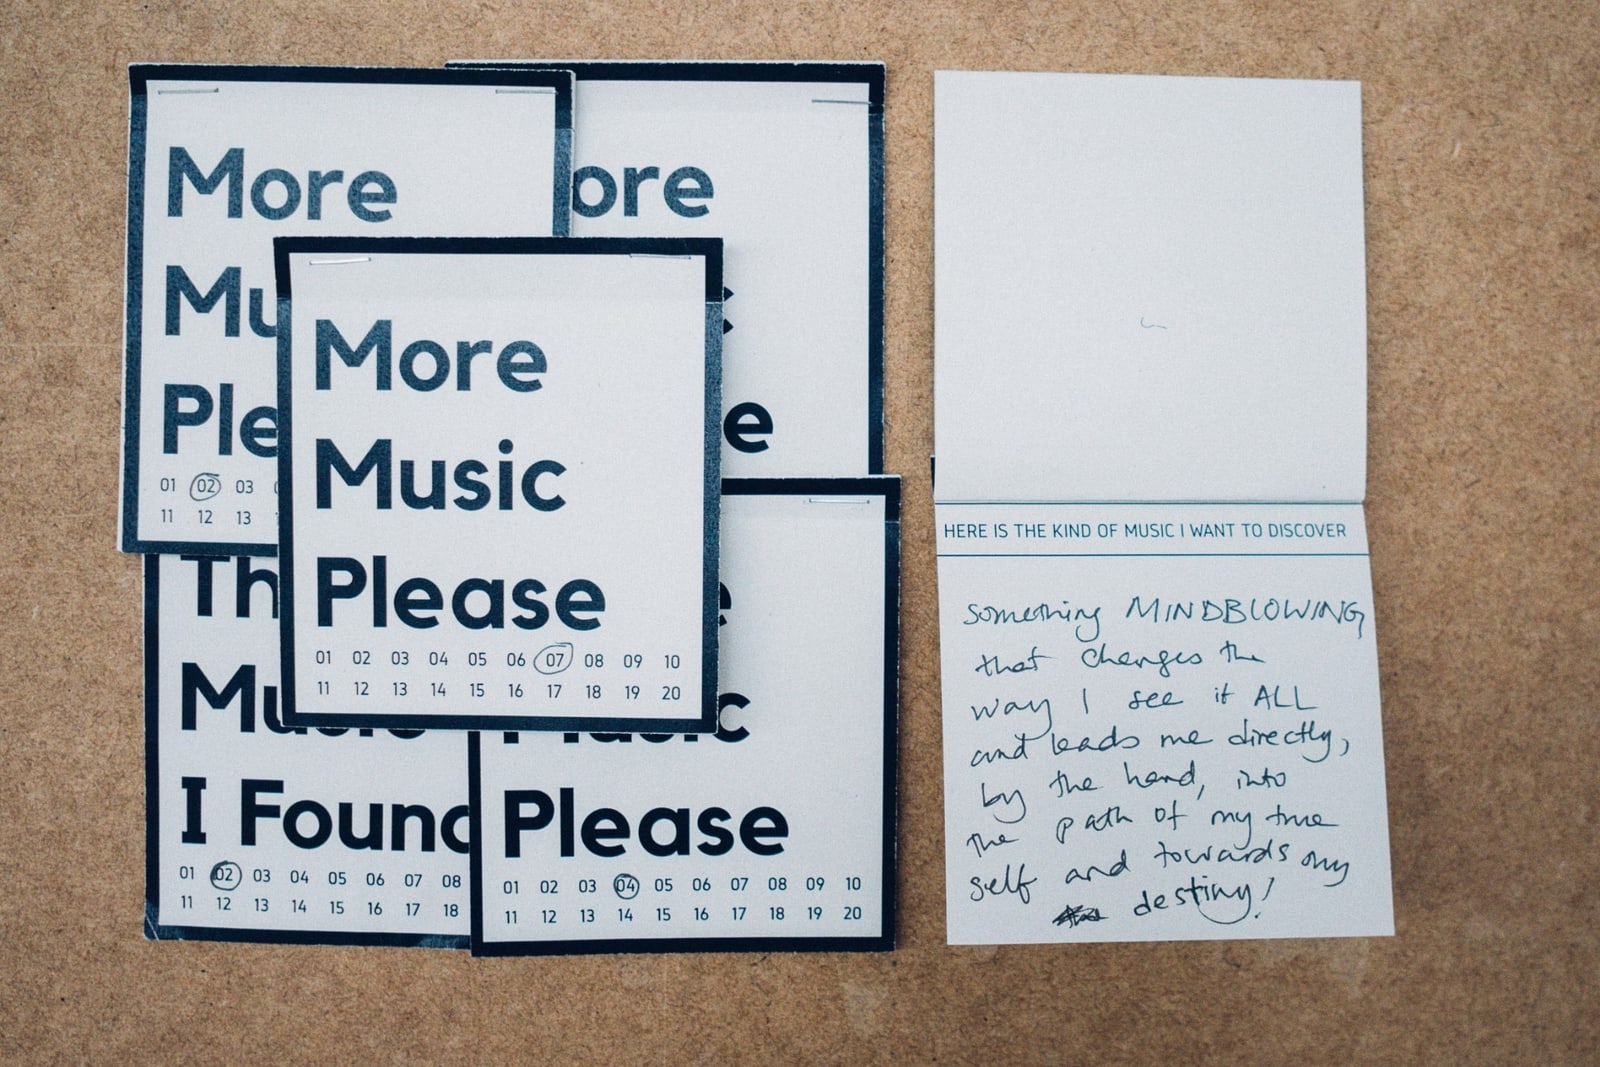 More
Mu
Ple
01 02 03
11 12 13
ore
c
e
More
Music
Please
01 02 03 04 05 06 07 08 09 10
11 12 13 14 15 16 17 18 19 20
Th
Music
I Found
01 02 03 04 05 06 07 08
11 12 13 14 15 16 17 18
e
Music
Please
01 02 03 04 05 06 07 08 09 10
11 12 13 14 15 16 17 18 19 20
HERE IS THE KIND OF MUSIC I WANT TO DISCOVER
something MINDBLOWING,
that changes the
way I see it ALL
and leads me directly,
by the hand, into
the path of my true
self and towards my
destiny!